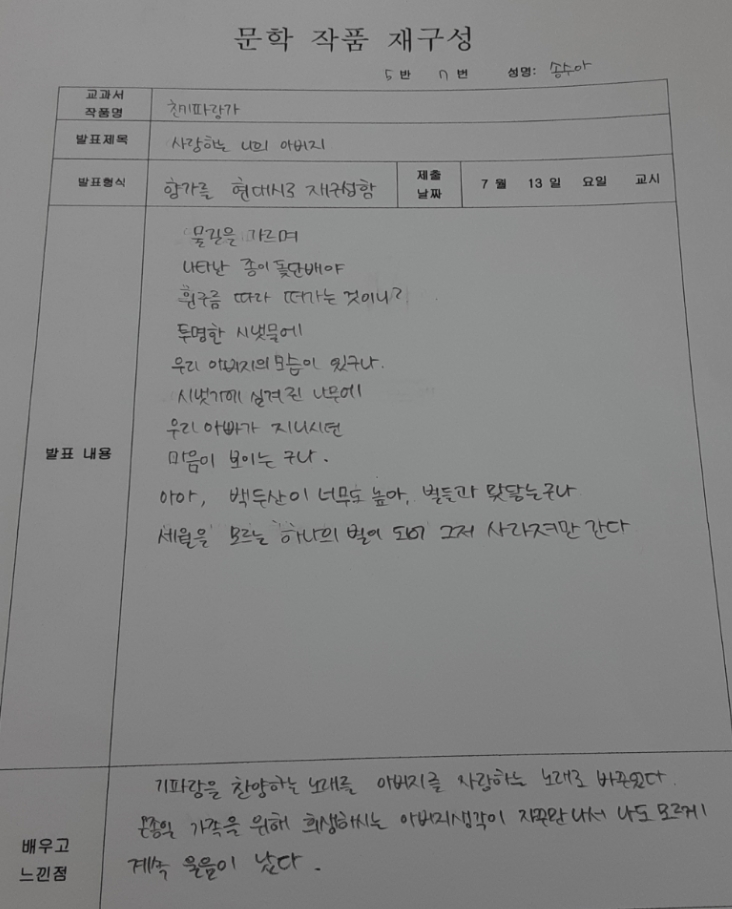 문학 작품 재구성
5 반 17 번 성명: 송수아
교과서 작품명 찬기파랑가
발표제목 사랑하는 나의 아버지
발표형식 향가를 현대시로 재구성함 제출 날짜 7 월 13 일 요일 교시
발표 내용
물길을 가르며
나타난 종이돛단배야
흰구름 따라 떠가는 것이니?
투명한 시냇물에
우리 아버지의 모습이 있구나.
시냇가에 심겨진 나무에
우리 아빠가 지니시던
마음이 보이는 구나.
아아, 백두산이 너무도 높아, 별들과 맞닿는구나
세월을 모르는 하나의 별이 되어 그저 사라져만 간다
배우고 느낀점
기파랑을 찬양하는 노래를 아버지를 사랑하는 노래로 바꾸었다.
온종일 가족을 위해 희생하시는 아버지생각이 자꾸만 나서 나도 모르게
계속 울음이 났다.